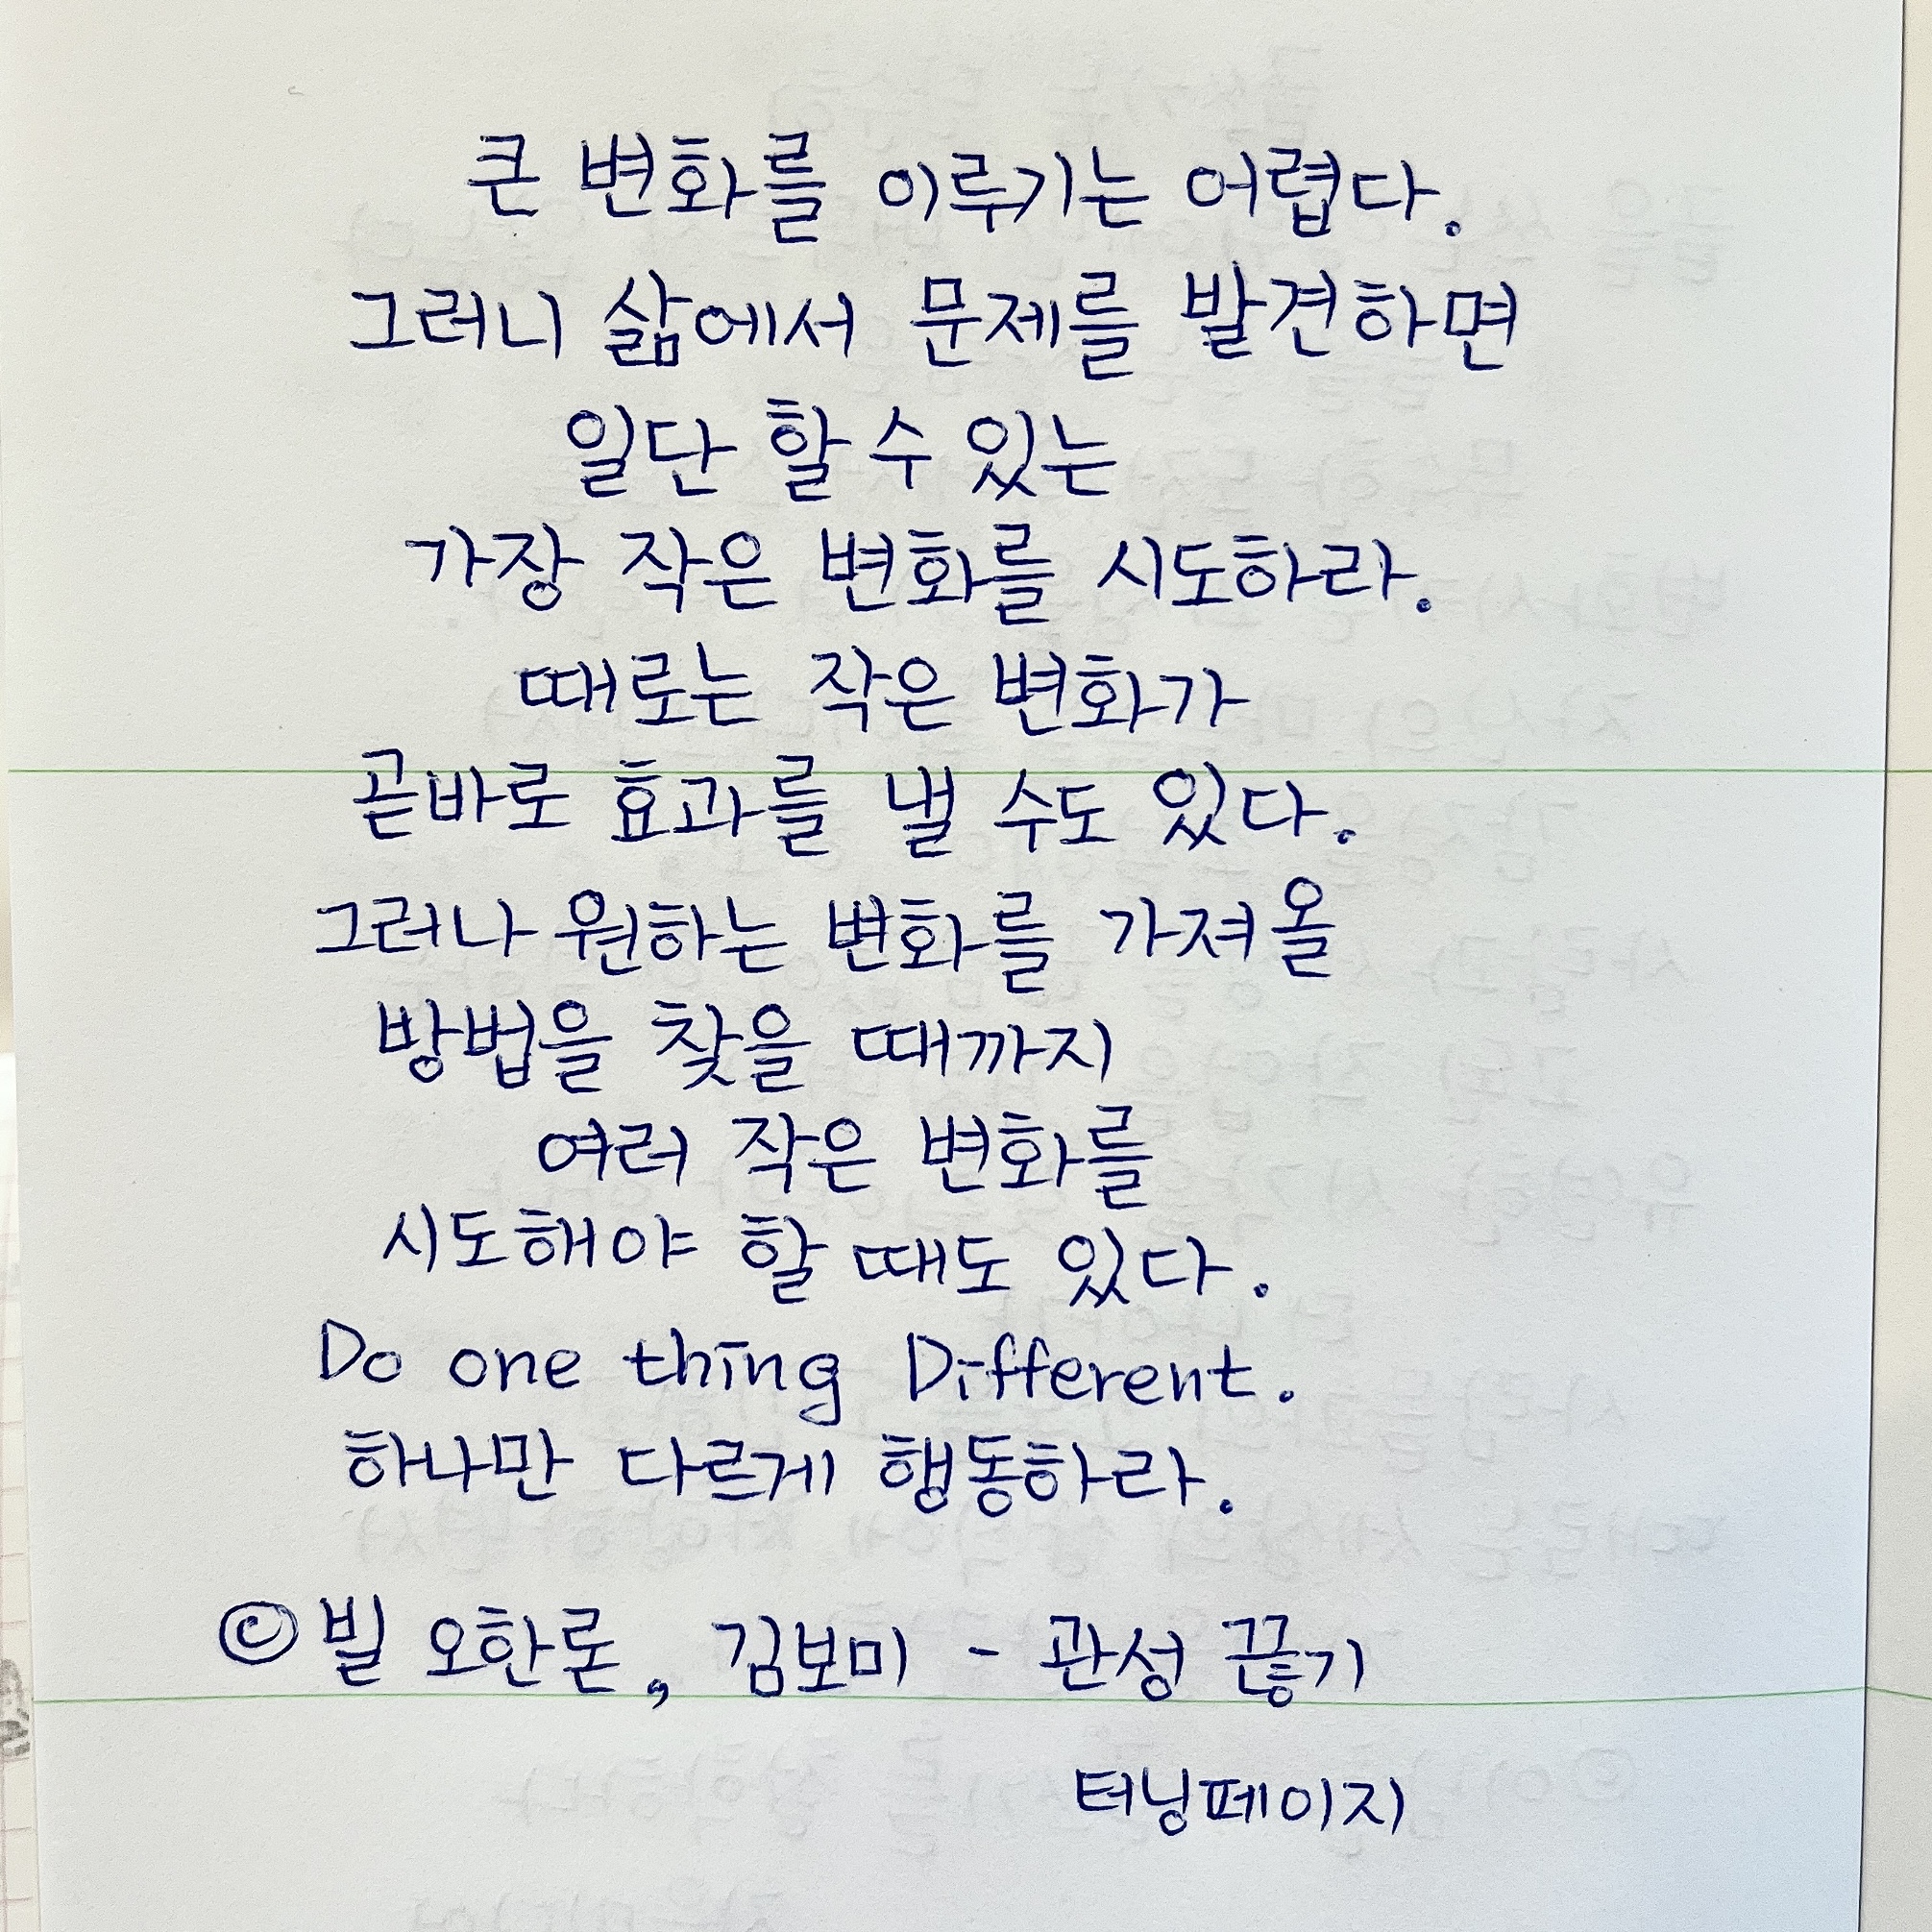 큰 변화를 이루기는 어렵다.
그러니 삶에서 문제를 발견하면
일단 할 수 있는
가장 작은 변화를 시도하라.
때로는 작은 변화가
곧바로 효과를 낼 수도 있다.
그러나 원하는 변화를 가져올
방법을 찾을 때까지
여러 작은 변화를
시도해야 할 때도 있다.
Do one thing Different.
하나만 다르게 행동하라.
© 빌 오한론, 김보미 - 관성 끊기
터닝페이지